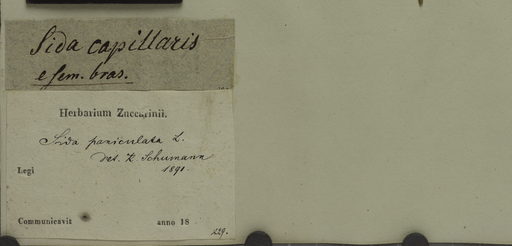 Sida capillaris
e sem. bras.
Herbarium Zuccarinii.
Sida paniculata L.
det. K. Schumann
1891.
Legi
Communicavit anno 18
229.